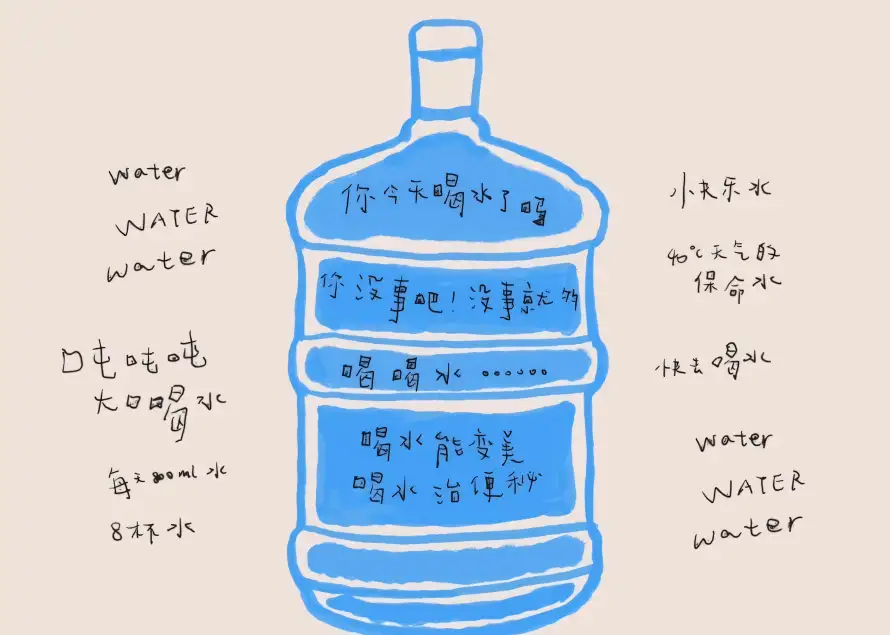 water
WATER
water
口屯吨吨
大口喝水
每天800ml水
8杯水
你今天喝水了吗
你没事吧!没事就多
喝喝水······
喝水能变美
喝水治便秘
小快乐水
40°C天气的
保命水
快去喝水
water
WATER
water